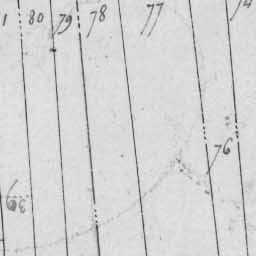 80 79 78 77 74
76
39